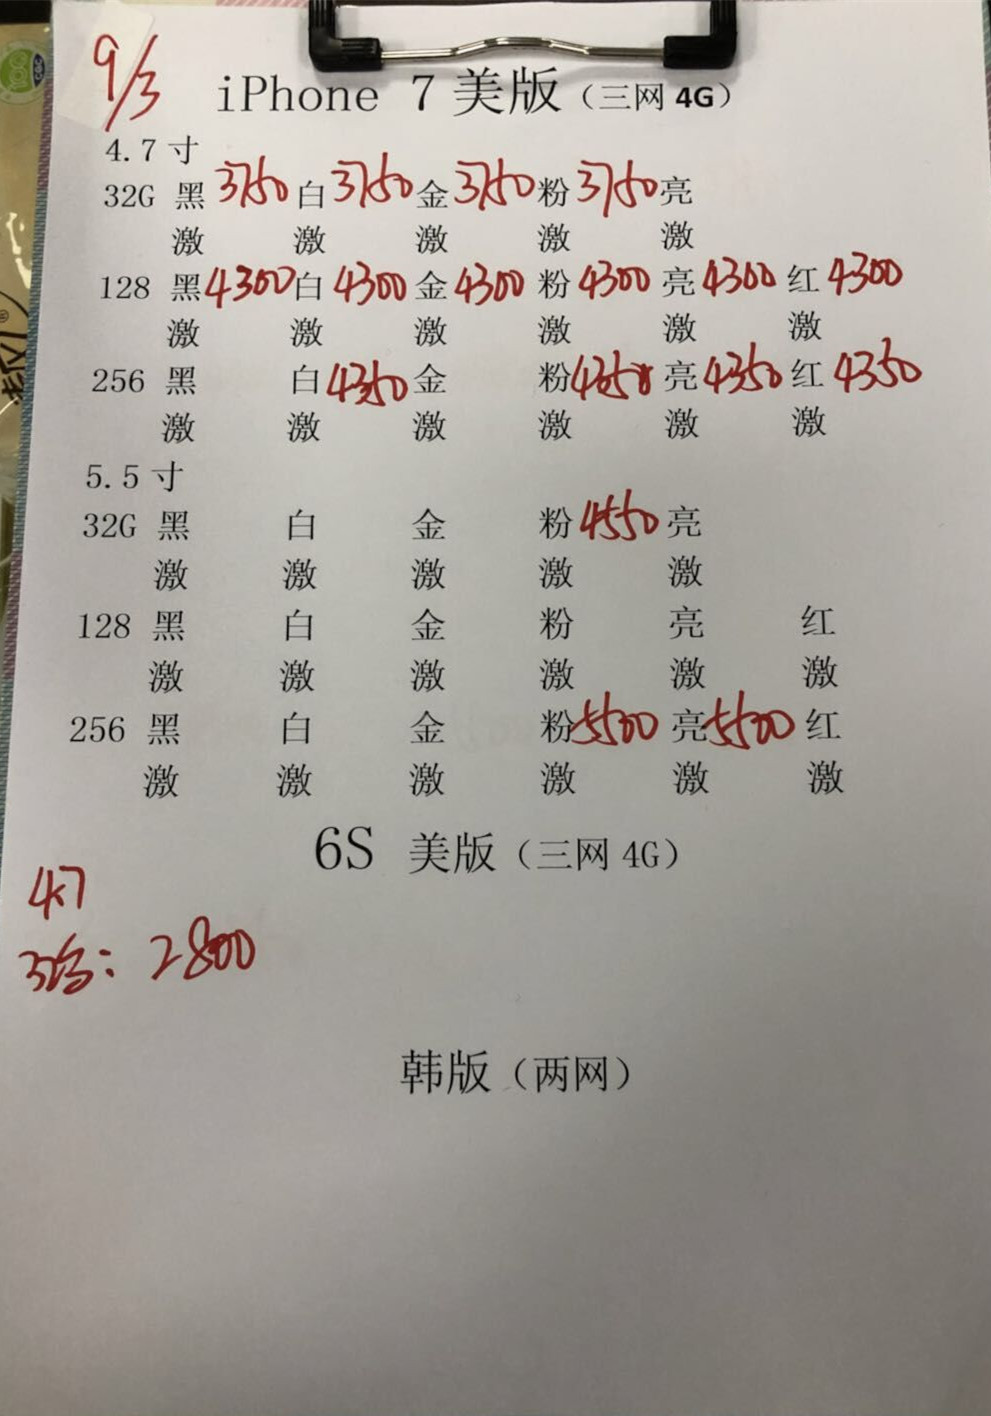 9/3
iPhone 7 美版（三网 4G）
4.7 寸
32G 黑 3750 白 3750 金 3750 粉 3750 亮
激 激 激 激 激
128 黑 4300 白 4300 金 4300 粉 4300 亮 4300 红 4300
激 激 激 激 激 激
256 黑 白 4350 金 粉 4350 亮 4350 红 4350
激 激 激 激 激 激
5.5 寸
32G 黑 白 金 粉 4550 亮
激 激 激 激 激
128 黑 白 金 粉 亮 红
激 激 激 激 激 激
256 黑 白 金 粉 5500 亮 5500 红
激 激 激 激 激 激
6S 美版（三网 4G）
4.7
2800
韩版（两网）